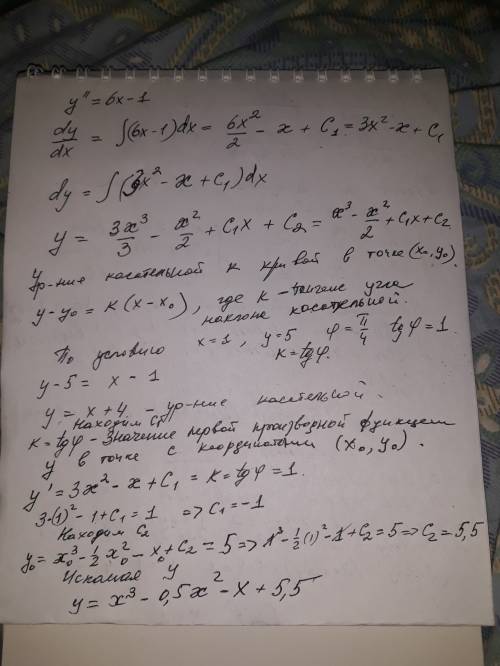 y'' = 6x - 1
dy/dx = ∫(6x-1)dx = 6x²/2 - x + C₁ = 3x² - x + C₁
dy = ∫(3x² - x + C₁)dx
y = 3x³/3 - x²/2 + C₁x + C₂ = x³ - x²/2 + C₁x + C₂
Ур-ние касательной к кривой в точке (x₀, y₀).
y - y₀ = k(x - x₀), где k - тангенс угла
наклона касательной.
По условию x = 1, y = 5 φ = π/4 tgφ = 1.
k = tgφ.
y - 5 = x - 1
y = x + 4 - ур-ние касательной.
Находим C₁
k = tgφ - значение первой производной функции
y в точке с координатами (x₀, y₀).
y' = 3x² - x + C₁ = k = tgφ = 1.
3·(1)² - 1 + C₁ = 1 => C₁ = -1
Находим C₂
y₀ = x₀³ - 1/2 x₀² - x₀ + C₂ = 5 => 1³ - 1/2(1)² - 1 + C₂ = 5 => C₂ = 5,5
Искомая y
y = x³ - 0,5x² - x + 5,5